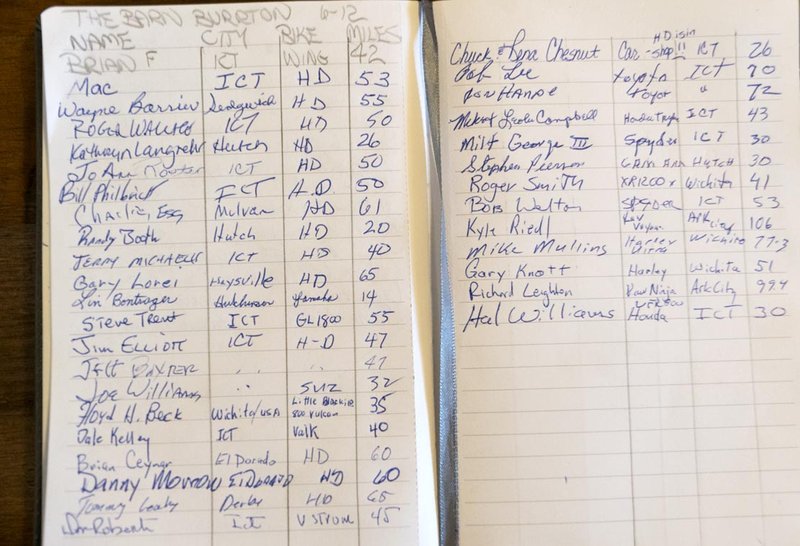 THE BARN BURRTON 6-12
NAME CITY BIKE MILES
BRIAN F ICT WING 42
Mac ICT HD 53
Wayne Barrier Sedgwick HD 55
ROGER ICT HD 50
Kathryn Langrehr Hutch HD 26
Jo Ann ICT HD 50
Bill Philbrick ICT H.D 50
Charlie, Esq Mulvane HD 61
Randy Booth Hutch HD 20
JERRY MICHAELIS ICT HD 40
Gary Lorei Haysville HD 65
Lin Bontrager Hutchinson Yamaha 14
Steve Trent ICT GL1800 55
Jim Elliott ICT H-D 47
Jeff BAXTER .. .. 47
Joe Williams .. SUZ 32
Floyd H. Beck Wichita/USA Little Blackie 800 Vulcan 35
Dale Kelley ICT Valk 40
Brian Ceynar El Dorado HD 60
Danny Morrow El Dorado HD 60
Tommy Leahy Derby HD 65
ICT V STROM 45
HD is in
Chuck & Rena Chesnut Car - shop!! ICT 26
Bob Lee toyota ICT 70
toyor " 72
Mike & Leola Campbell Honda Tryke ICT 43
Milt George III Spyder ICT 30
Stephen Pierson CAN AM HUTCH 30
Roger Smith XR1200X Wichita 41
Bob Walton SPYDER ICT 53
Kyle Riedl Kaw Voyager Ark City 106
Mike Mullins Harley Ultra Wichita 77.3
Gary Knott Harley Wichita 51
Richard Leighton Kaw Ninja Ark City 99.4
VERSUS
Hal Williams Honda ICT 30